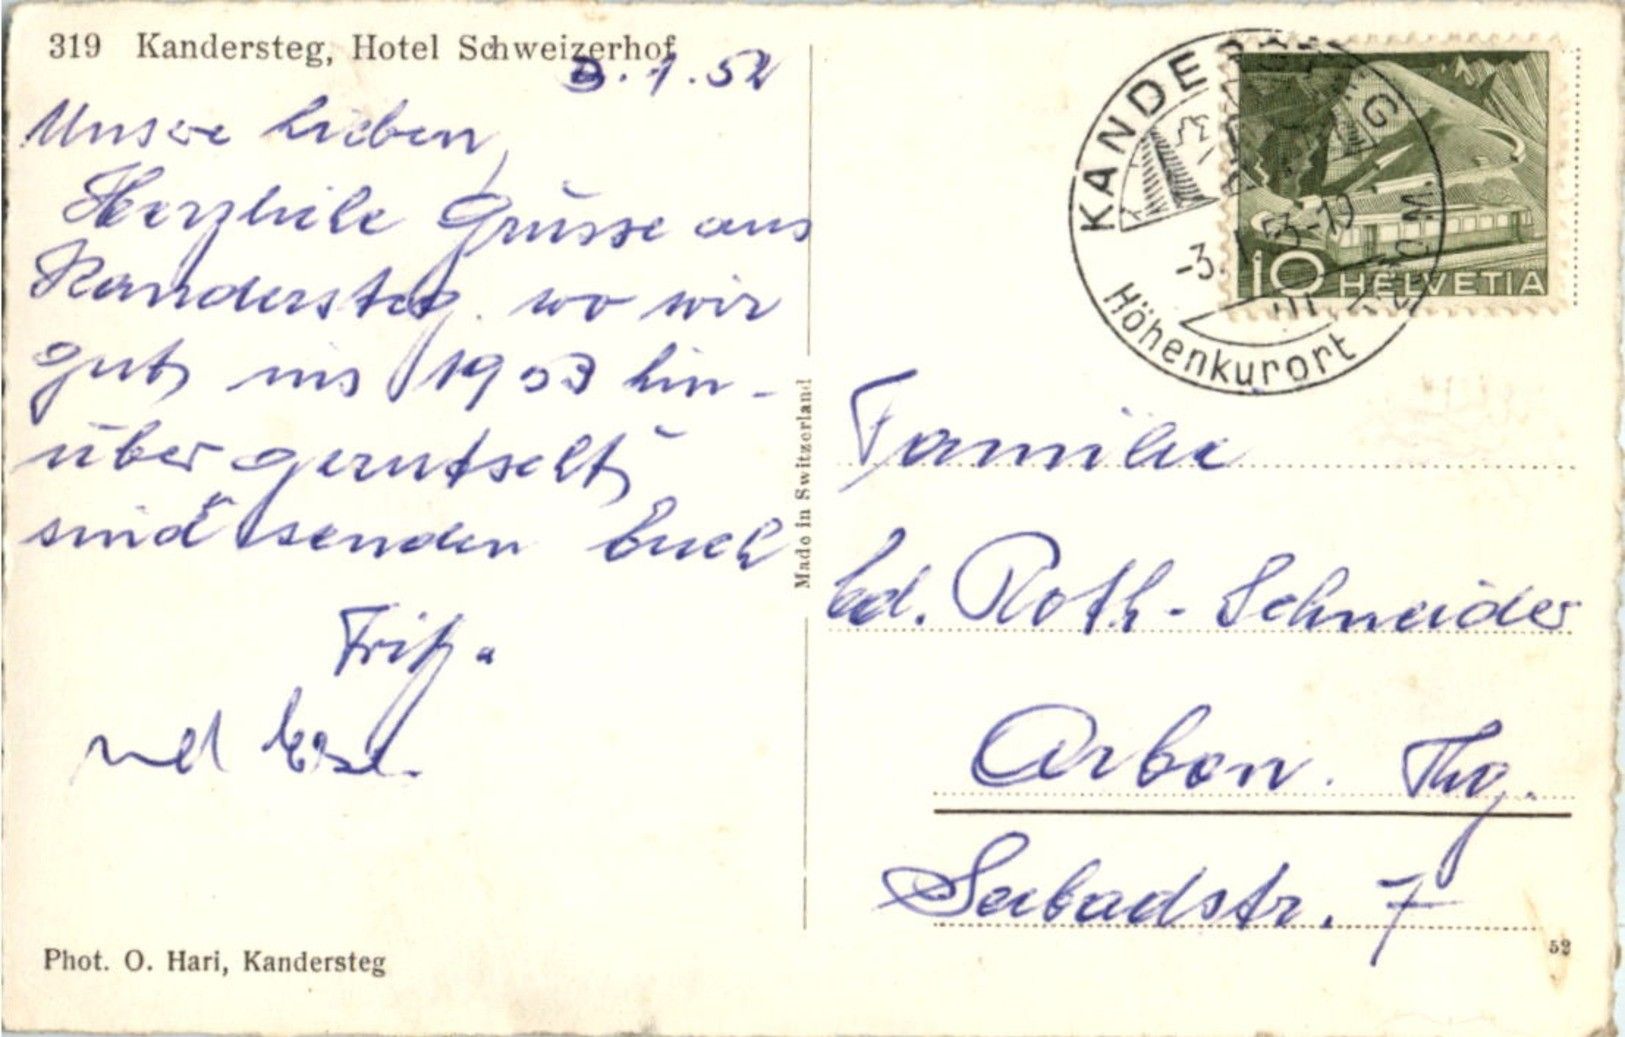 319 Kandersteg, Hotel Schweizerhof
3.1.52
Unsere Lieben,
Herzliche Grüsse aus
Kandersteg. wo wir
gut ins 1953 hin-
über gerutscht
sind senden Euch
Fritz.
und
Phot. O. Hari, Kandersteg
Made in Switzerland
KANDERSTEG
-3. I 53-19
Höhenkurort
10 HELVETIA
Familie
Ed. Roth-Schneider
Arbon. Thg.
Seebadstr. 7
52